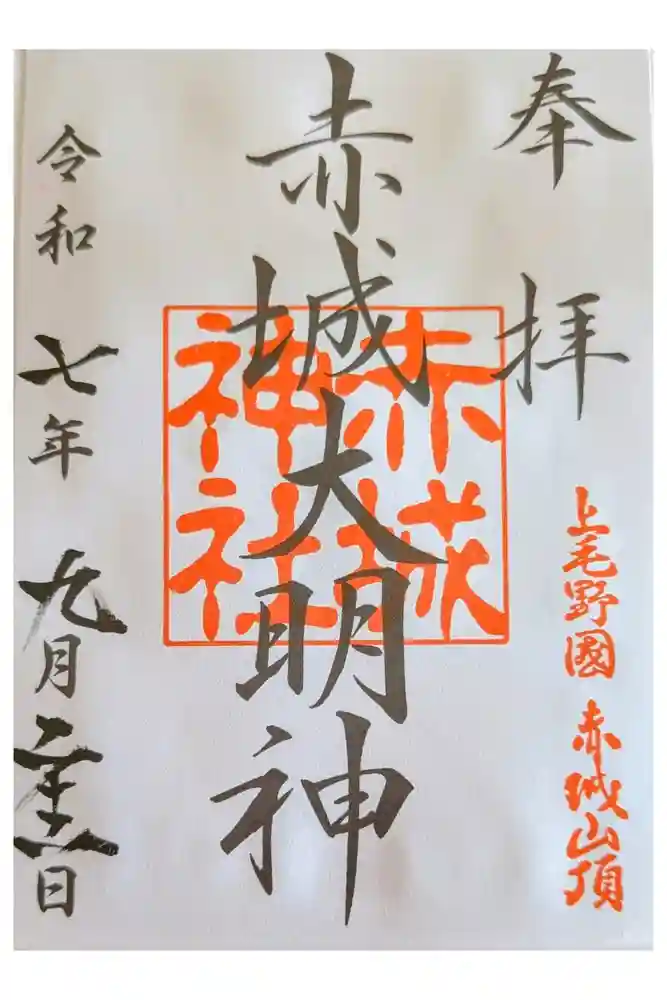 奉拝
上毛野國 赤城山頂
赤城大明神
赤城
神社
令和 七年 九月 二十 日